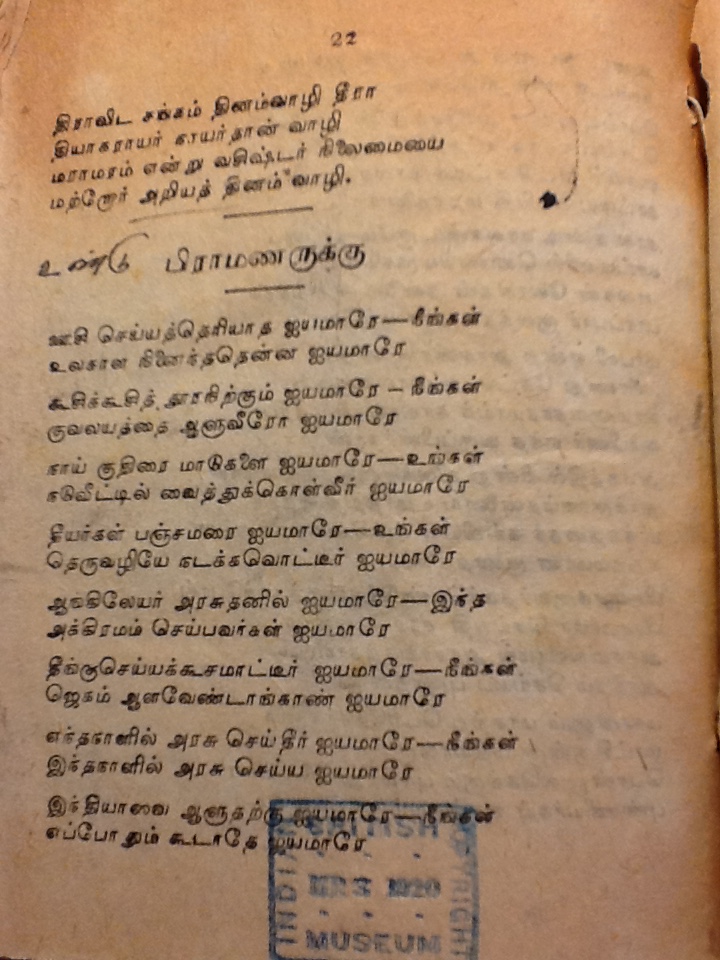 22
திராவிட சங்கம் தினம்வாழி தீரா
தியாகராயர் காயர்தான் வாழி
மராமரம் என்று வசிஷ்டர் நிலைமையை
மற்றோர் அறியத் தினம் வாழி.
உண்டு பிராமணருக்கு
ஊசி செய்யத்தெரியாத ஐயமாரே—நீங்கள்
உலகாள நினைந்ததென்ன ஐயமாரே
கூசிக்கூசித் தூரநிற்கும் ஐயமாரே – நீங்கள்
குவலயத்தை ஆளுவீரோ ஐயமாரே
நாய் குதிரை மாடுகளை ஐயமாரே—உங்கள்
நடுவீட்டில் வைத்துக்கொள்வீர் ஐயமாரே
தீயர்கள் பஞ்சமரை ஐயமாரே—உங்கள்
தெருவழியே நடக்கவொட்டீர் ஐயமாரே
ஆங்கிலேயர் அரசுதனில் ஐயமாரே—இந்த
அக்கிரமம் செய்பவர்கள் ஐயமாரே
தீங்குசெய்யக்கூசமாட்டீர் ஐயமாரே—நீங்கள்
ஜெகம் ஆளவேண்டாங்காண் ஐயமாரே
எந்தநாளில் அரசு செய்தீர் ஐயமாரே—நீங்கள்
இந்தநாளில் அரசு செய்ய ஐயமாரே
இந்தியாவை ஆளுதற்கு ஐயமாரே—நீங்கள்
எப்போதும் கூடாதே ஐயமாரே
BRITISH
INDIA
COPYRIGHT
1920
MUSEUM